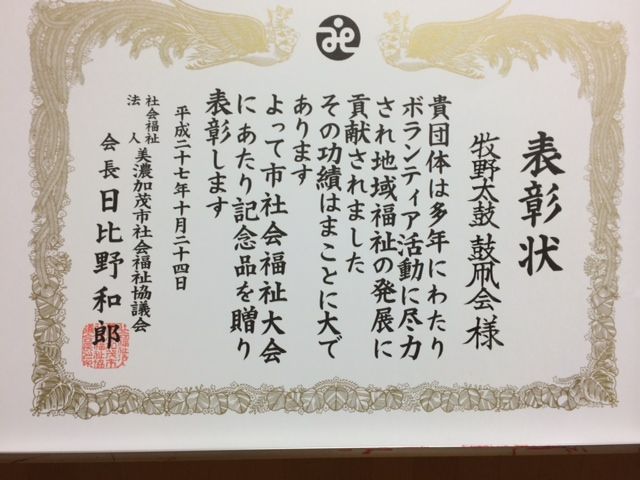 表彰状
牧野太鼓 鼓凧会 様
貴団体は多年にわたり
ボランティア活動に尽力
され地域福祉の発展に
貢献されました
その功績はまことに大で
あります
よって市社会福祉大会
にあたり記念品を贈り
表彰します
平成二十七年十月二十四日
社会福祉
法人 美濃加茂市社会福祉協議会
会長 日比野和郎